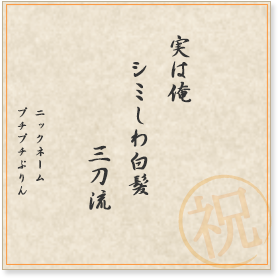 実は俺
シミしわ白髪
三刀流
ニックネーム
プチプチぷりん
祝